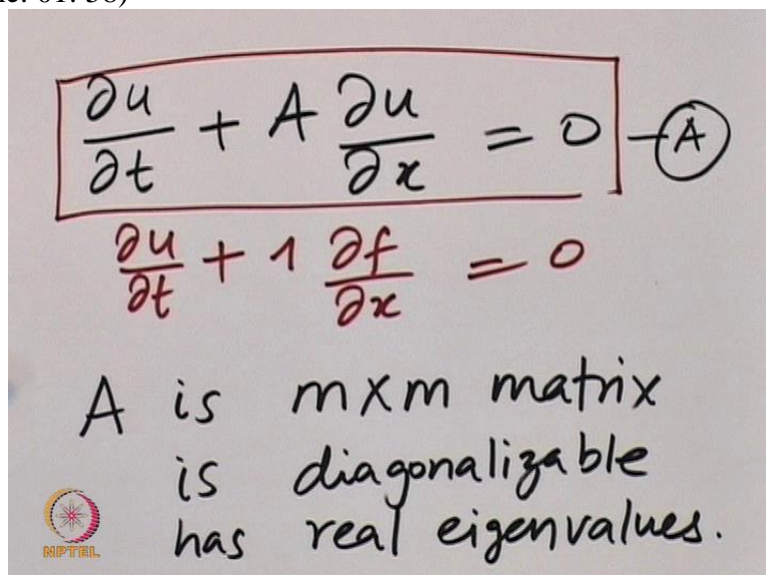 ∂u/∂t + A ∂u/∂x = 0 — Ⓐ
∂u/∂t + 1 ∂f/∂x = 0
A is m×m matrix
is diagonalizable
has real eigenvalues.
NPTEL